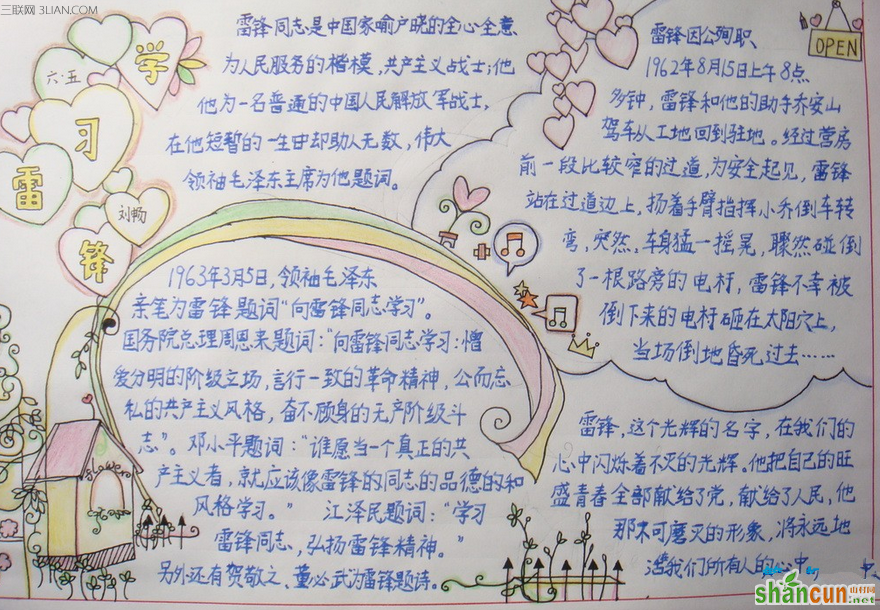 三联网 3LIAN.COM
学
习
雷
锋
六·五
刘畅
雷锋同志是中国家喻户晓的全心全意
为人民服务的楷模,共产主义战士;他
他为一名普通的中国人民解放军战士,
在他短暂的一生中却助人无数,伟大
领袖毛泽东主席为他题词。
OPEN
雷锋因公殉职
1962年8月15日上午8点
多钟,雷锋和他的助手乔安山
驾车从工地回到驻地。经过营房
前一段比较窄的过道,为安全起见,雷锋
站在过道边上,扬着手臂指挥小乔倒车转
弯,突然,车身猛一摇晃,骤然碰倒
了一根路旁的电杆,雷锋不幸被
倒下来的电杆砸在太阳穴上,
当场倒地昏死过去……
1963年3月5日,领袖毛泽东
亲笔为雷锋题词“向雷锋同志学习”。
国务院总理周恩来题词:“向雷锋同志学习:憎
爱分明的阶级立场,言行一致的革命精神,公而忘
私的共产主义风格,奋不顾身的无产阶级斗
志”。邓小平题词:“谁愿当一个真正的共
产主义者,就应该像雷锋的同志的品德的和
风格学习。” 江泽民题词:“学习
雷锋同志,弘扬雷锋精神。”
另外还有贺敬之、董必武为雷锋题诗。
雷锋,这个光辉的名字,在我们的
心中闪烁着不灭的光辉。他把自己的旺
盛青春全部献给了党,献给了人民,他
那不可磨灭的形象,将永远地
活我们所有人的心中
shancun
山村网
.net